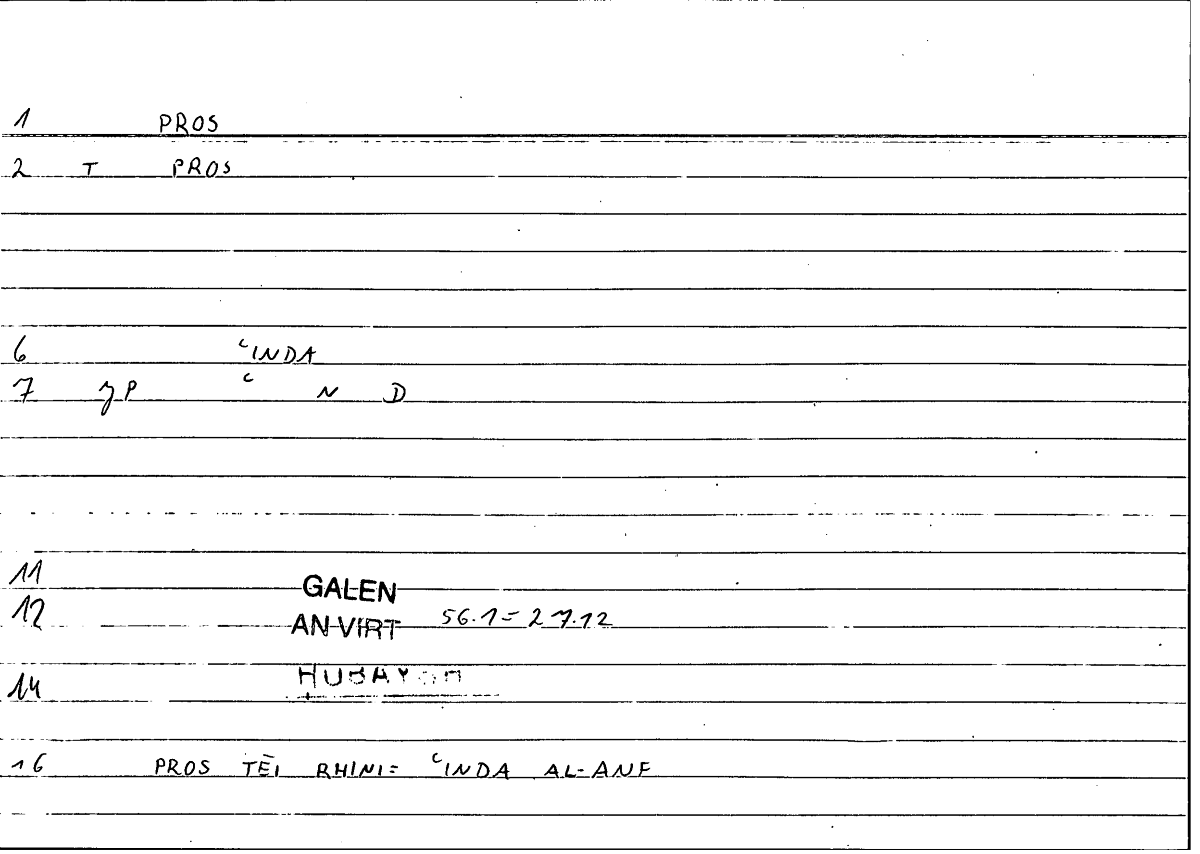 1 PROS
2 T PROS
6 ʿINDA
7 ʿ N D
11 GALEN
12 AN VIRT 56.1=27.12
14
16 PROS TĒI RHINI= ʿINDA AL-ANF